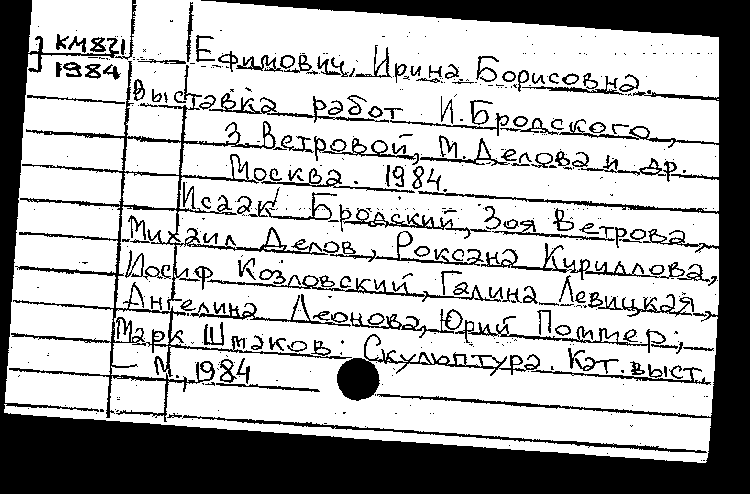 КМ821
1984
Ефимович, Ирина Борисовна.
Выставка работ И.Бродского,
З.Ветровой, М.Делова и др.
Москва. 1984.
Исаак Бродский, Зоя Ветрова,
Михаил Делов, Роксана Кириллова,
Иосиф Козловский, Галина Левицкая,
Ангелина Леонова, Юрий Поммер;
Марк Шмаков: Скульптура. Кат. выст.
— М., 1984